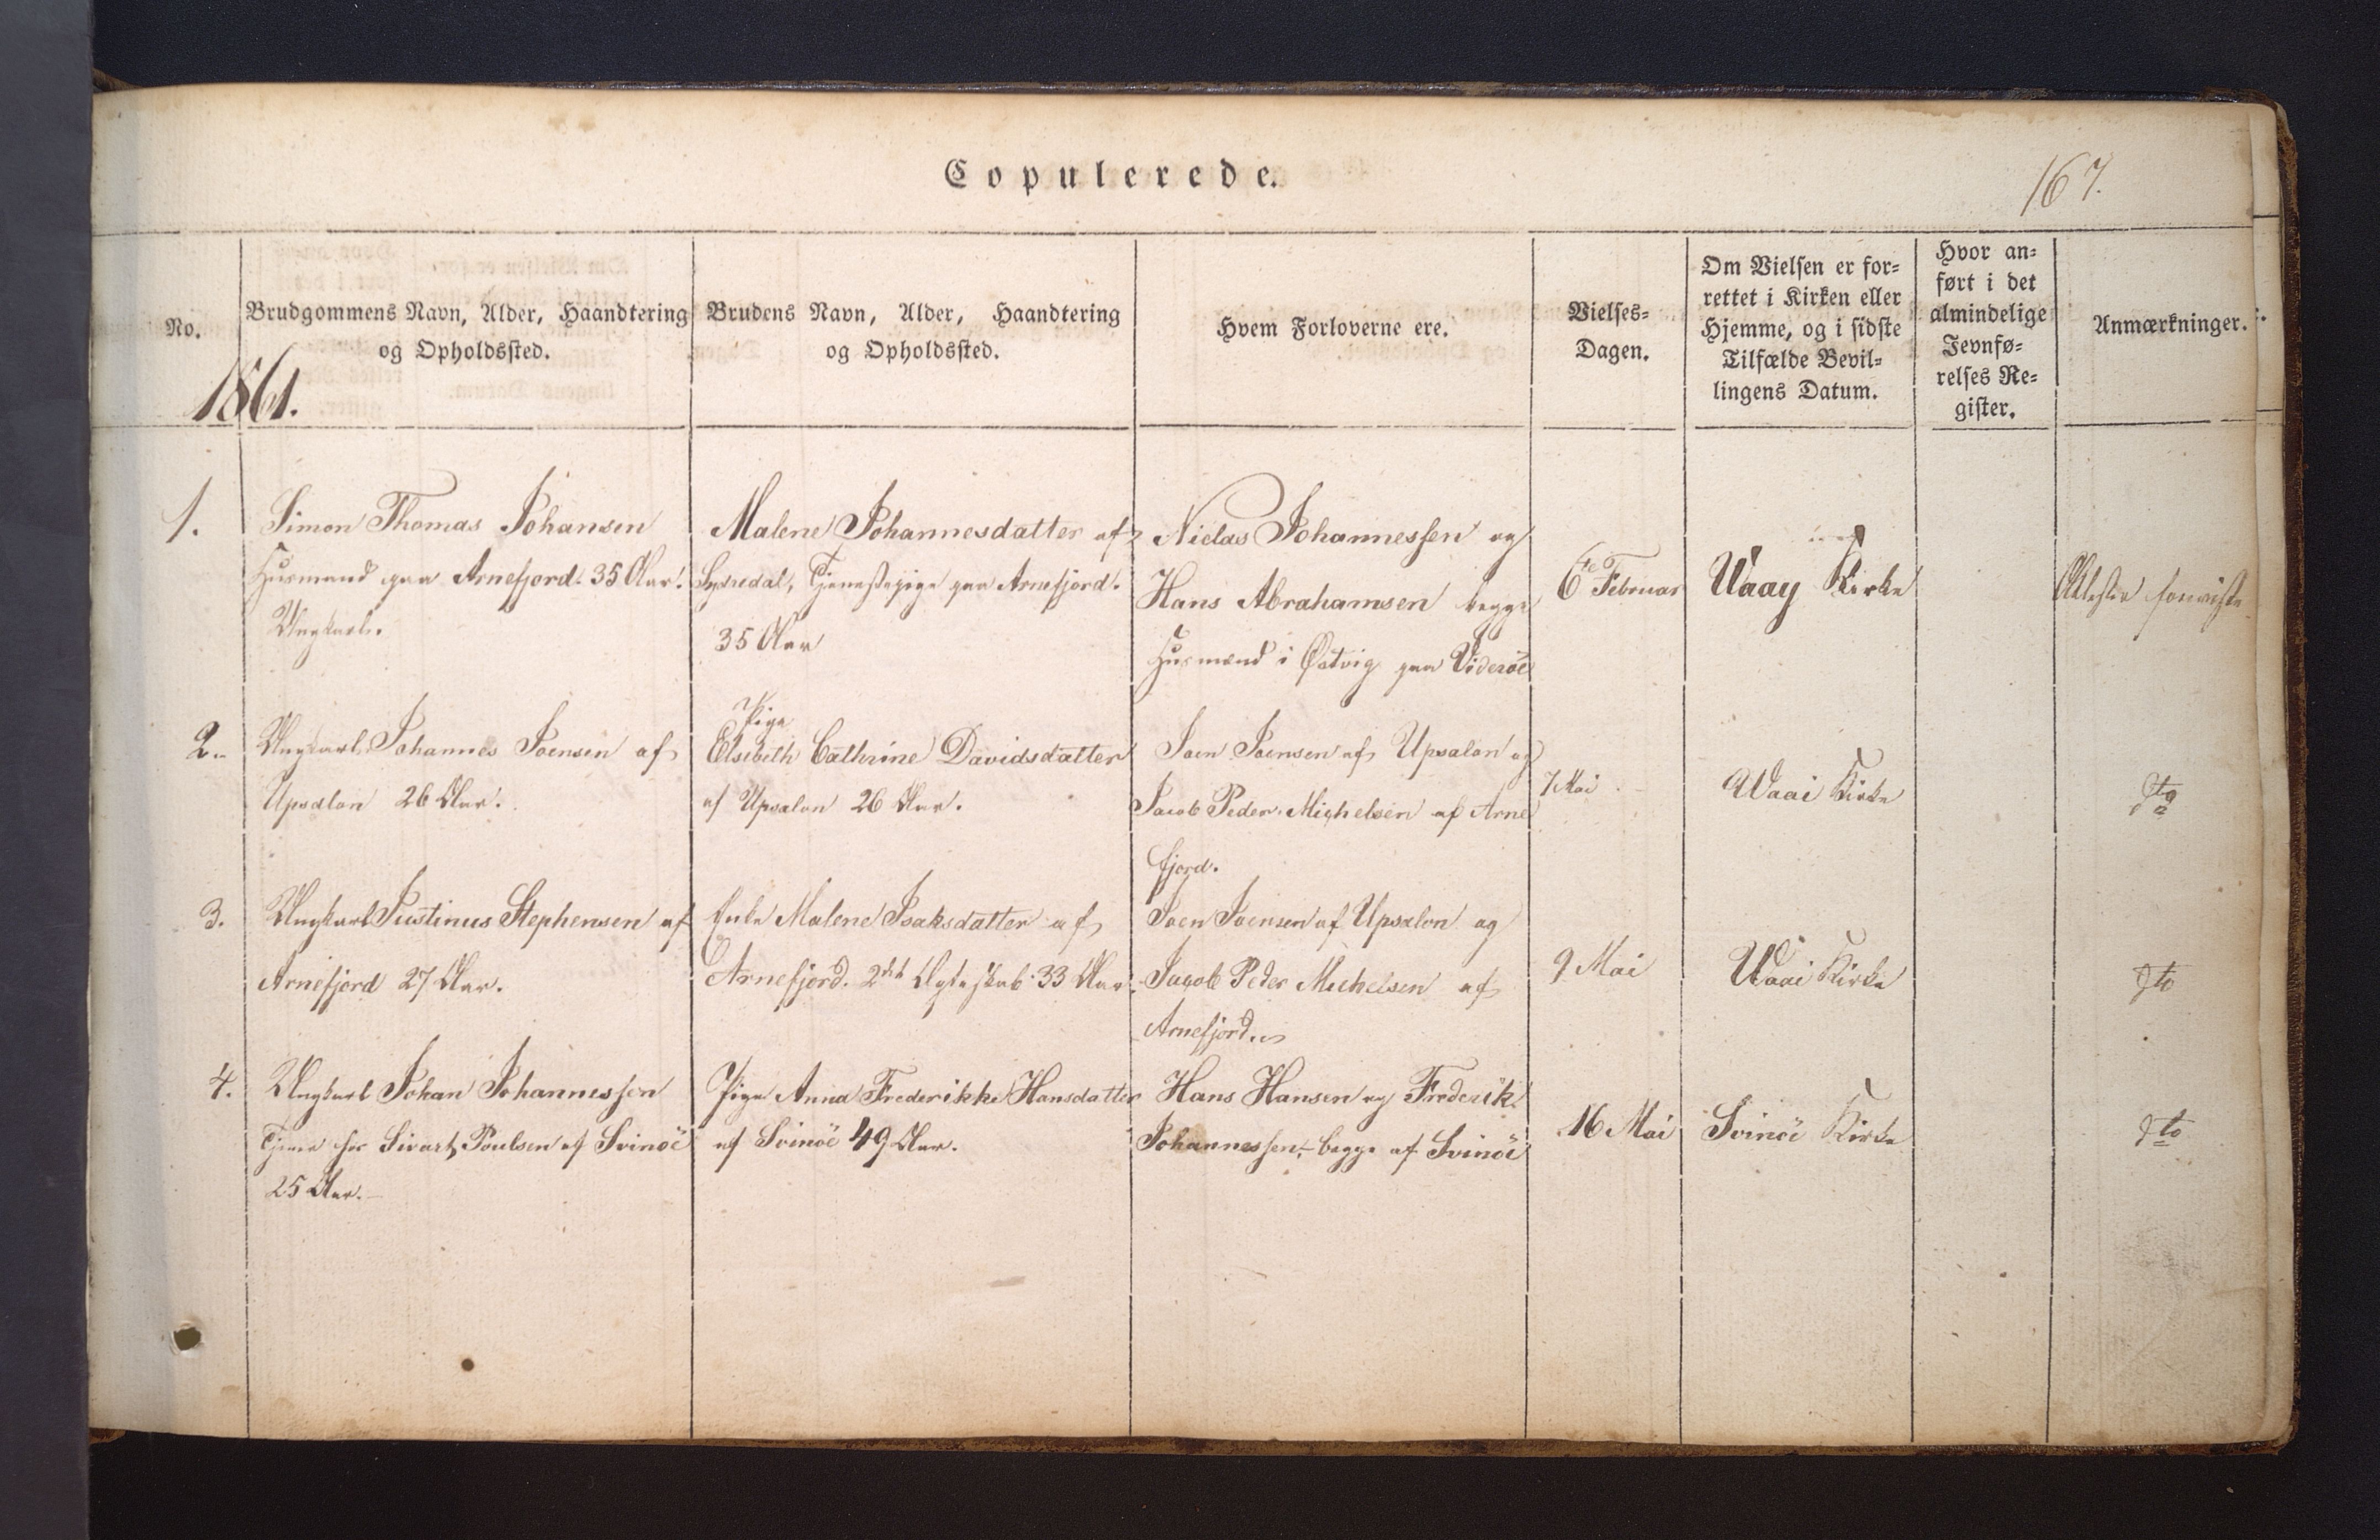 Copulerede.
167.
No.
Brudgommens Navn, Alder, Haandtering
og Opholdssted.
Brudens Navn, Alder, Haandtering
og Opholdssted.
Hvem Forloverne ere.
Vielses=
Dagen.
Om Vielsen er for=
rettet i Kirken eller
Hjemme, og i sidste
Tilfælde Bevil=
lingens Datum.
Hvor an=
ført i det
almindelige
Jevnfø=
relses Re=
gister.
Anmærkninger.
1861.
1.
Simon Thomas Johansen
Husmand paa Arnefjord. 35 Aar.
Ungkarl.
Malene Johannesdatter af
Tjenestepige paa Arnefjord.
35 Aar
Niclas Johannessen og
Hans Abrahamsen begge
Husmænd i Østvig paa Viderøe
6te Februar
Waay Kirke
Attester foreviste
2.
Ungkarl Johannes Joensen af
Upsalon 26 Aar.
Pige
Elsebeth Cathrine Davidsdatter
af Upsalon 26 Aar.
Joen Joensen af Upsalon og
Jacob Peder Michelsen af Arne
fjord.
7 Mai
Waai Kirke
dto
3.
Ungkarl Justinus Stephensen af
Arnefjord 27 Aar.
Enke Malene Isaksdatter af
Arnefjord. 2det Ægteskab 33 Aar.
Joen Joensen af Upsalon og
Jacob Peder Michelsen af
Arnefjord.
9 Mai
Waai Kirke
dto
4.
Ungkarl Johan Johannessen
Tjener hos Sivart Poulsen af Svinöe
25 Aar.
Pige Anna Frederikke Hansdatter
af Svinöe 49 Aar.
Hans Hansen og Frederik
Johannessen, begge af Svinöe
16 Mai
Svinöe Kirke
dto